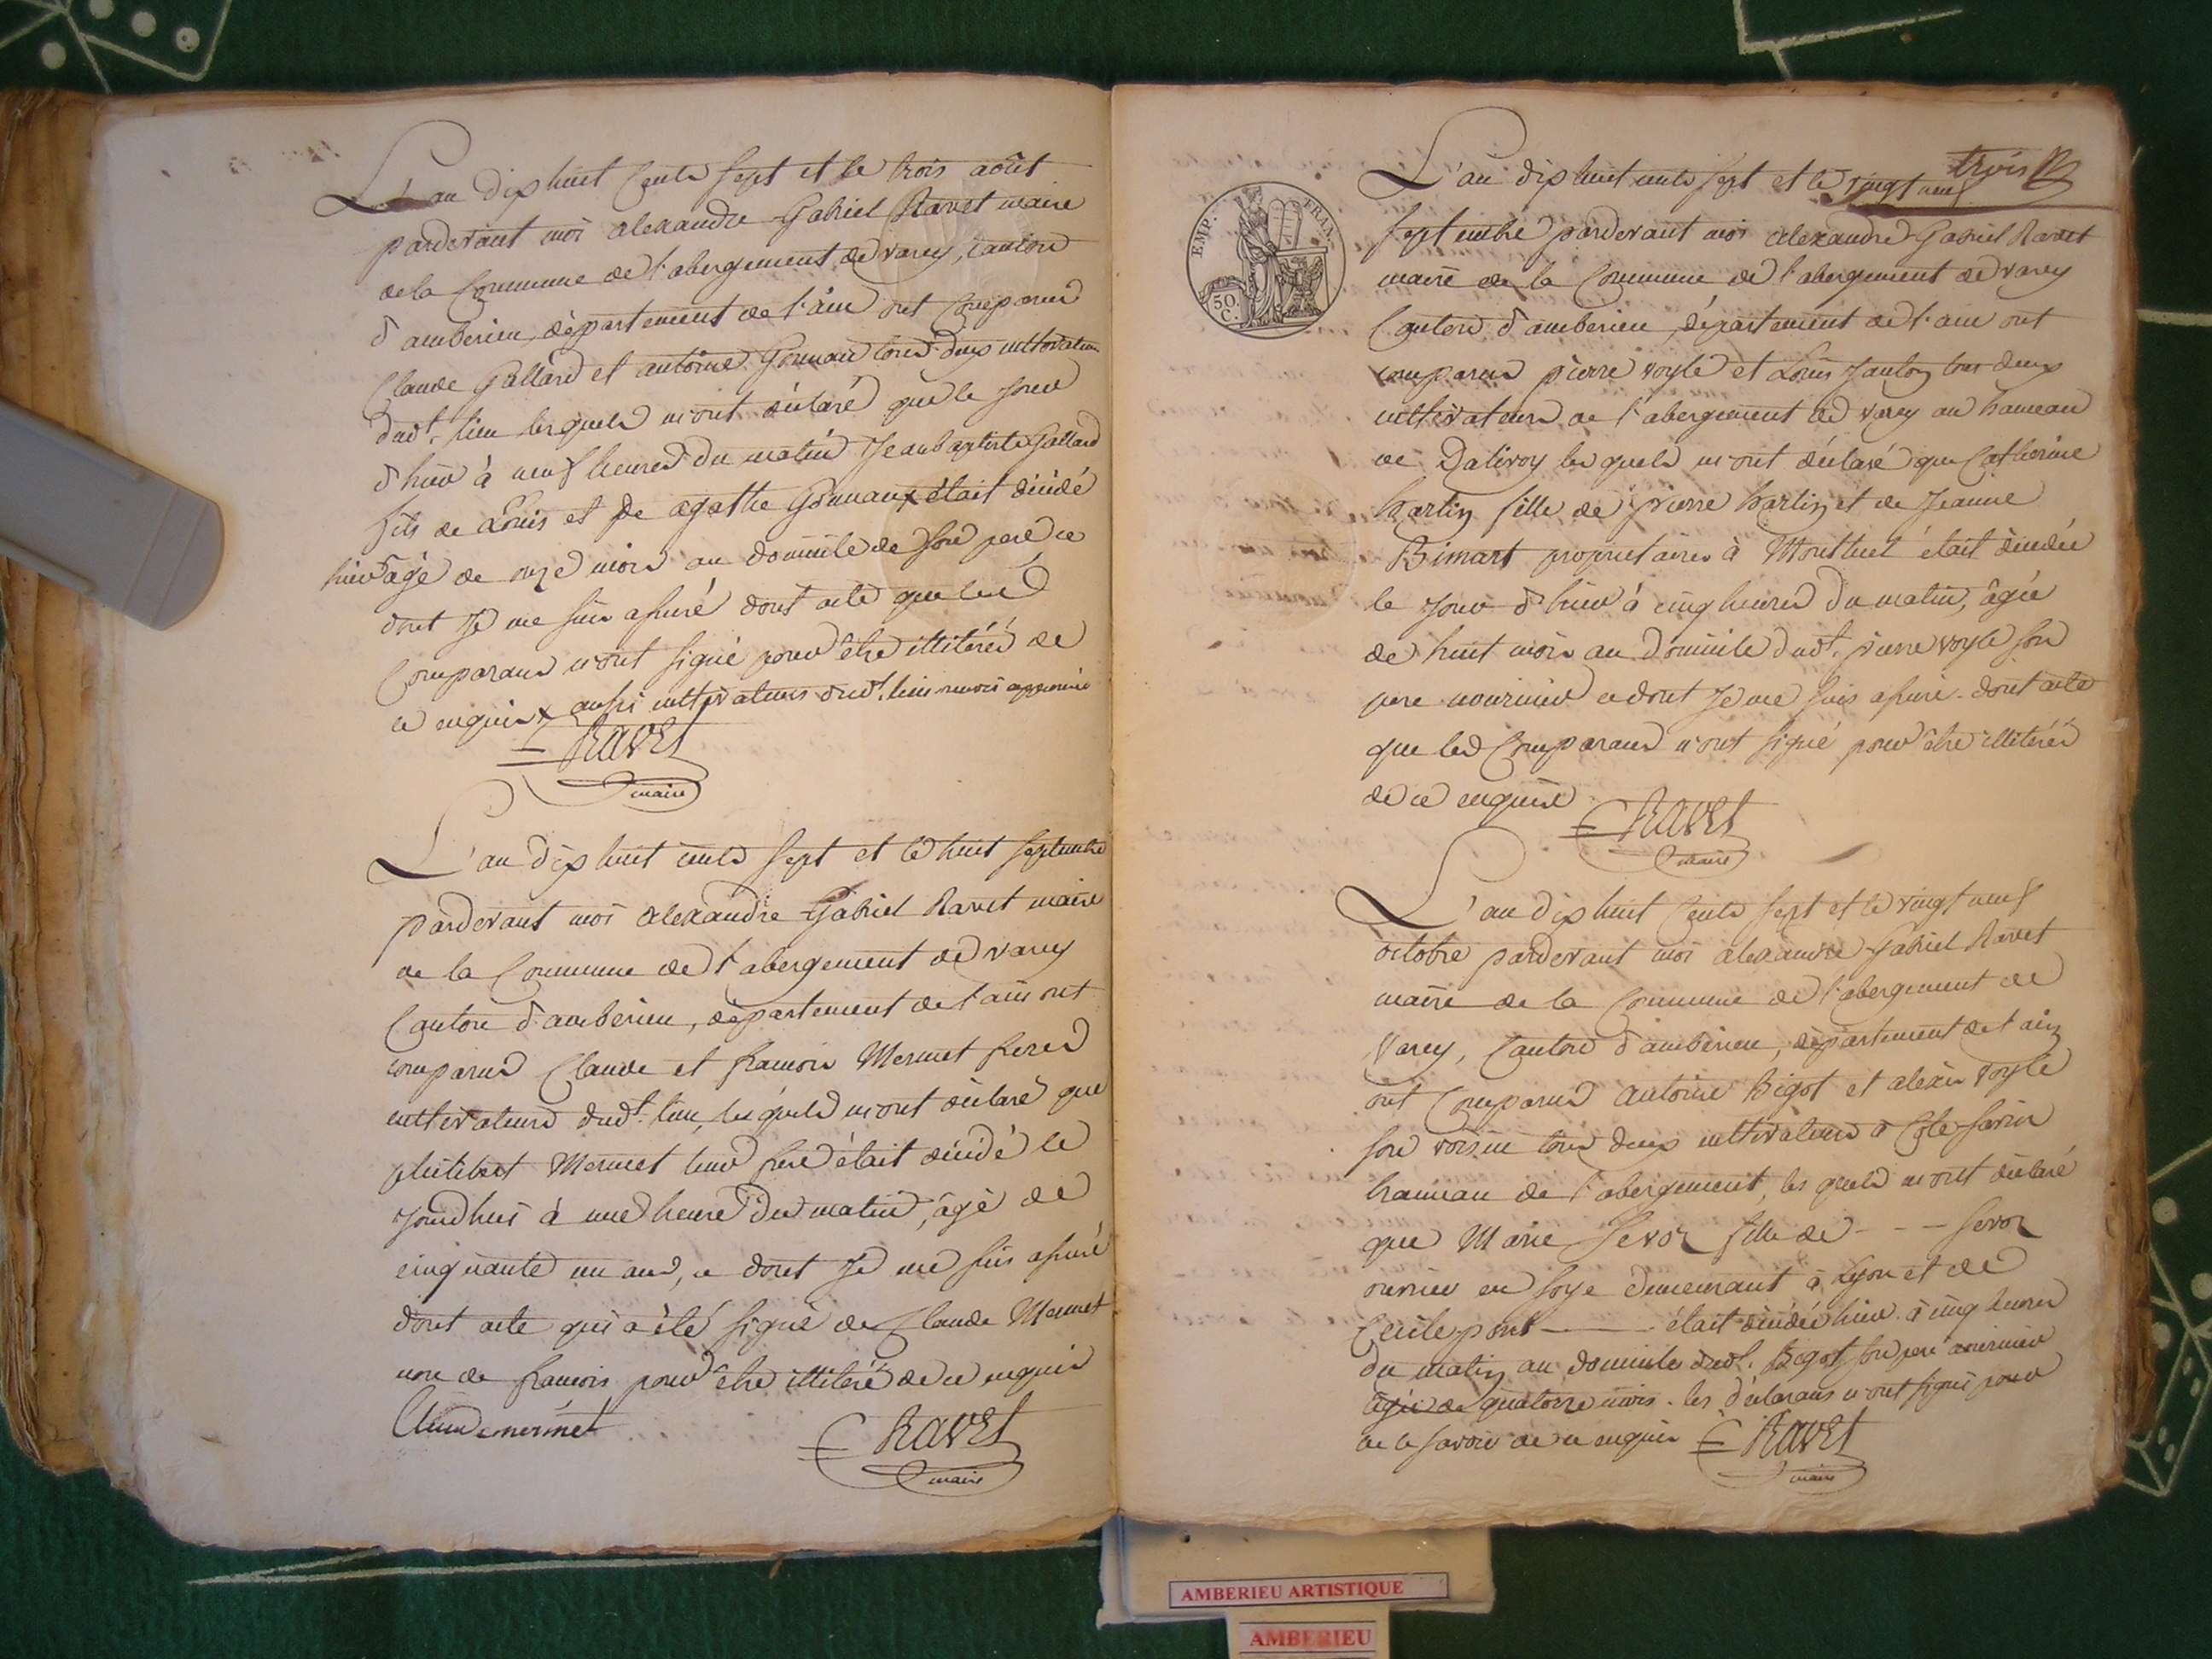 L'an dix huit cents sept et le trois août
pardevant moi alexandre Gabriel Ravet maire
de la Commune de l'abergement de varey, canton
d'amberieu, département de l'ain ont comparus
Claude Gallard et antoine Gonnan tous deux cultivateurs
dudt. lieu lesquels m'ont déclaré que le jour
d'hier à neuf heures du matin Jean baptiste Gallard
fils de Louis et de agathe Gonnan x était décédé
hier âgé de onze mois au domicile de son pere ce
dont Je me suis assuré dont acte que les
Comparans n'ont signé pour être illiterés de
ce enquis x aussi cultivateurs dudt. lieu renvoi approuvé
Ravet
maire
L'an dix huit cents sept et le huit septembre
pardevant moi alexandre Gabriel Ravet maire
de la Commune de l'abergement de varey
Canton d'amberieu, département de l'ain ont
comparus Claude et francois Mermet freres
cultivateurs dudt. lieu, lesquels m'ont déclaré que
philibert Mermet leur frere était décédé le
jourdhui à une heure du matin, âgé de
cinquante un ans, ce dont Je me suis assuré
dont acte qui a été signé de Claude Mermet
non de francois pour être illiteré de ce enquis
Claude mermet
Ravet
maire
trois
EMP. FRAN.
50. C.
L'an dix huit cents sept et le vingt neuf
septembre pardevant moi alexandre Gabriel Ravet
maire de la Commune de l'abergement de varey
Canton d'amberieu, département de l'ain ont
comparus pierre voyle et Louis Janton tous deux
cultivateurs de l'abergement de varey au hameau
de Dalivoy lesquels m'ont déclaré que Catherine
Martin fille de pierre Martin et de Jeanne
Bimart proprietaires à Montluel était décédée
le jour d'hier à cinq heures du matin, âgée
de huit mois au domicile dudt. pierre voyle son
pere nouricier ce dont Je me suis assuré dont acte
que les Comparans n'ont signé pour être illiterés
de ce enquis
Ravet
maire
L'an dix huit cents sept et le vingt neuf
octobre pardevant moi alexandre Gabriel Ravet
maire de la Commune de l'abergement de
Varey, Canton d'amberieu, département de l'ain
ont comparus antoine Bigot et alexis voyle
son voisin tous deux cultivateurs à Côte-savin
hameau de l'abergement, les quels m'ont déclaré
que Marie Sevoz fille de - - - Sevoz
ouvrier en soye demeurant à Lyon et de
Cecile pont ——— était décédée hier à cinq heures
du matin au domicile dudt. Bigot son pere nouricier
âgée de quatorze mois. les déclarans n'ont signé pour
ne le savoir de ce enquis
Ravet
maire
AMBERIEU ARTISTIQUE
AMBERIEU